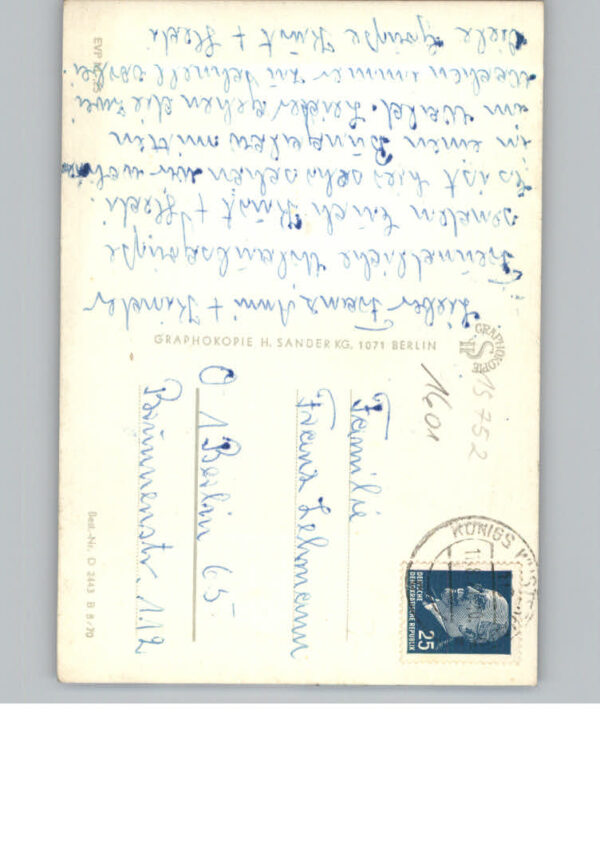 Lieber Franz Anni + Kinder
Freundliche Urlaubsgrüße
senden Euch Kurt + Hedi.
Es ist hier sehr schön wir wohnen
in einem Bungalow mitten
im Wald. Leider gehen die zwei
Wochen immer zu schnell vorbei.
Viele Grüße Kurt + Hedi
EVP
GRAPHOKOPIE H. SANDER KG, 1071 BERLIN
GRAPHOKOPIE
15752
1601
Familie
Franz Lehmann
1 Berlin 65
Brunnenstr. 112
Best.-Nr. D 2443 B 8/70
KÖNIGS
DEUTSCHE
DEMOKRATISCHE REPUBLIK
25